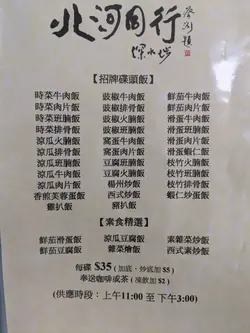 北河同行
深水埗
【招牌碟頭飯】
時菜牛肉飯 豉椒牛肉飯 鮮茄牛肉飯
時菜肉片飯 豉椒排骨飯 鮮茄肉片飯
時菜班腩飯 豉椒火腩飯 鮮茄班腩飯
時菜排骨飯 豉椒班腩飯 滑蛋牛肉飯
涼瓜火腩飯 窩蛋牛肉飯 滑蛋肉片飯
涼瓜排骨飯 窩蛋肉片飯 滑蛋蝦仁飯
涼瓜班腩飯 豆腐火腩飯 枝竹火腩飯
涼瓜牛肉飯 豆腐班腩飯 枝竹班腩飯
涼瓜肉片飯 楊州炒飯 枝竹排骨飯
香煎芙蓉蛋飯 西式炒飯 蝦仁炒蛋飯
雞扒飯 豬扒飯
【素食精選】
鮮茄滑蛋飯 涼瓜豆腐飯 素雜菜炒飯
鮮茄豆腐飯 雜菜燴飯 西式素炒飯
每碟 $35 ( 加底、炒底加 $5 )
奉送咖啡或茶 ( 凍飲加 $2 )
(供應時段：上午11:00 至 下午3:00)